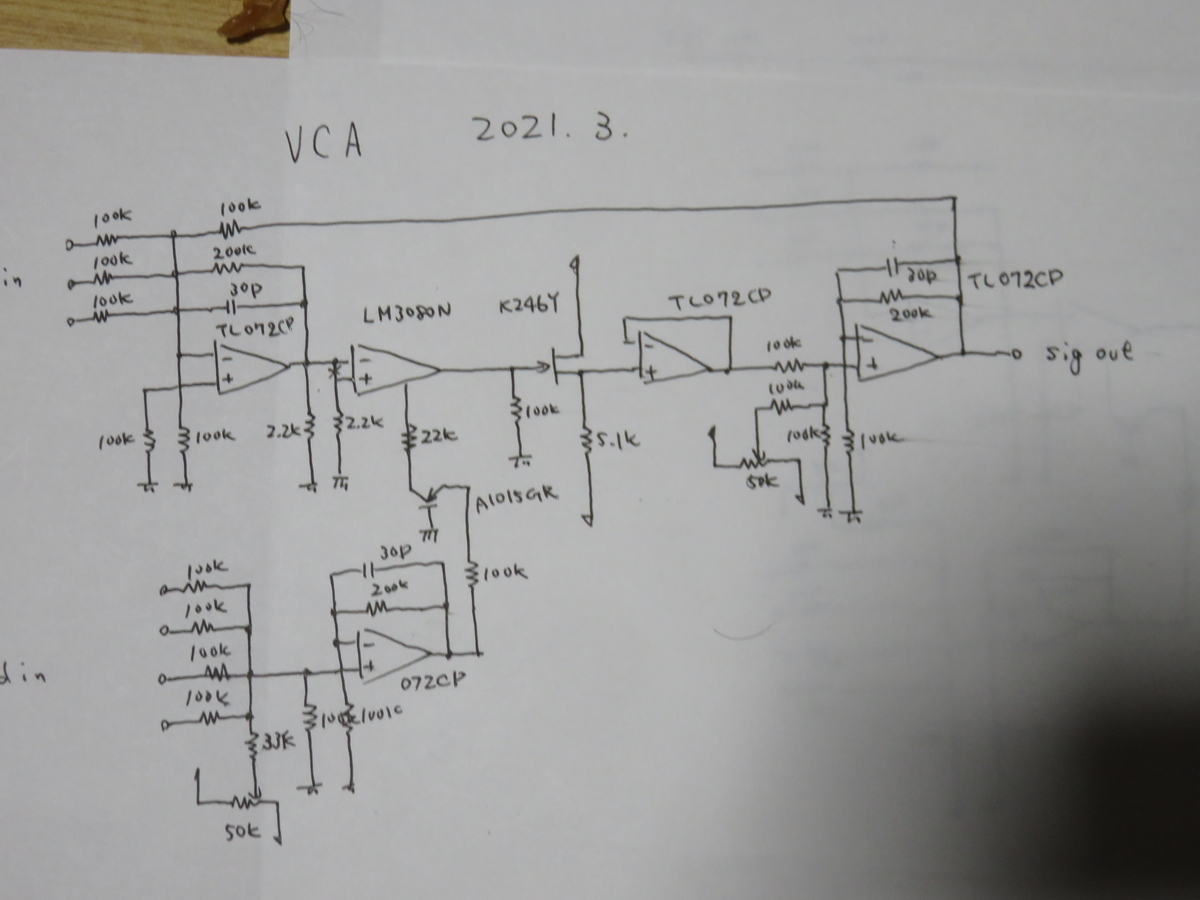 VCA 2021. 3.
100k 100k
in 100k 200k
100k 30p
30p TL072CP
TL072CP LM3080N K246Y TL072CP
200k
100k sig out
100k
100k 100k 2.2k 2.2k 22k 100k 5.1k 100k 100k
50k
A1015GR
30p
100k 200k 100k
100k
100k
d in 072CP
100k
100k 100k
33k
50k